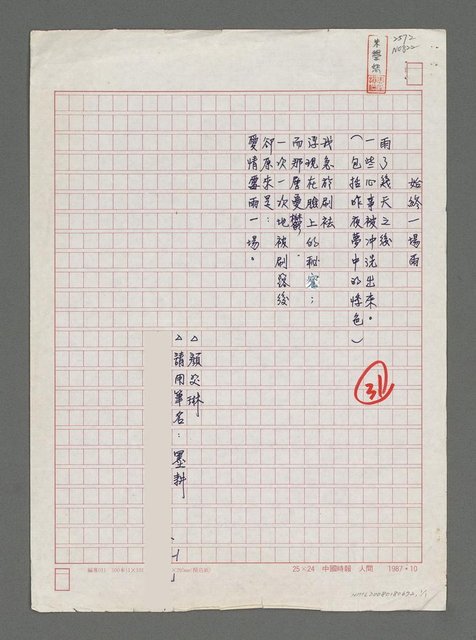 2572
N0822
始終一場雨
雨了幾天之後
一些心事被冲洗出來。
(包括昨夜夢中的情色)
我急於刷祛
浮現在臉上的秘密;
而那層憂鬱.
一次一次地被刷落後
卻原來是:
愛情雲雨一場。
31
△顏艾琳
△請用筆名:墨耕
25×24 中國時報 人間 1987·10
NMTL20080180692, 1/1